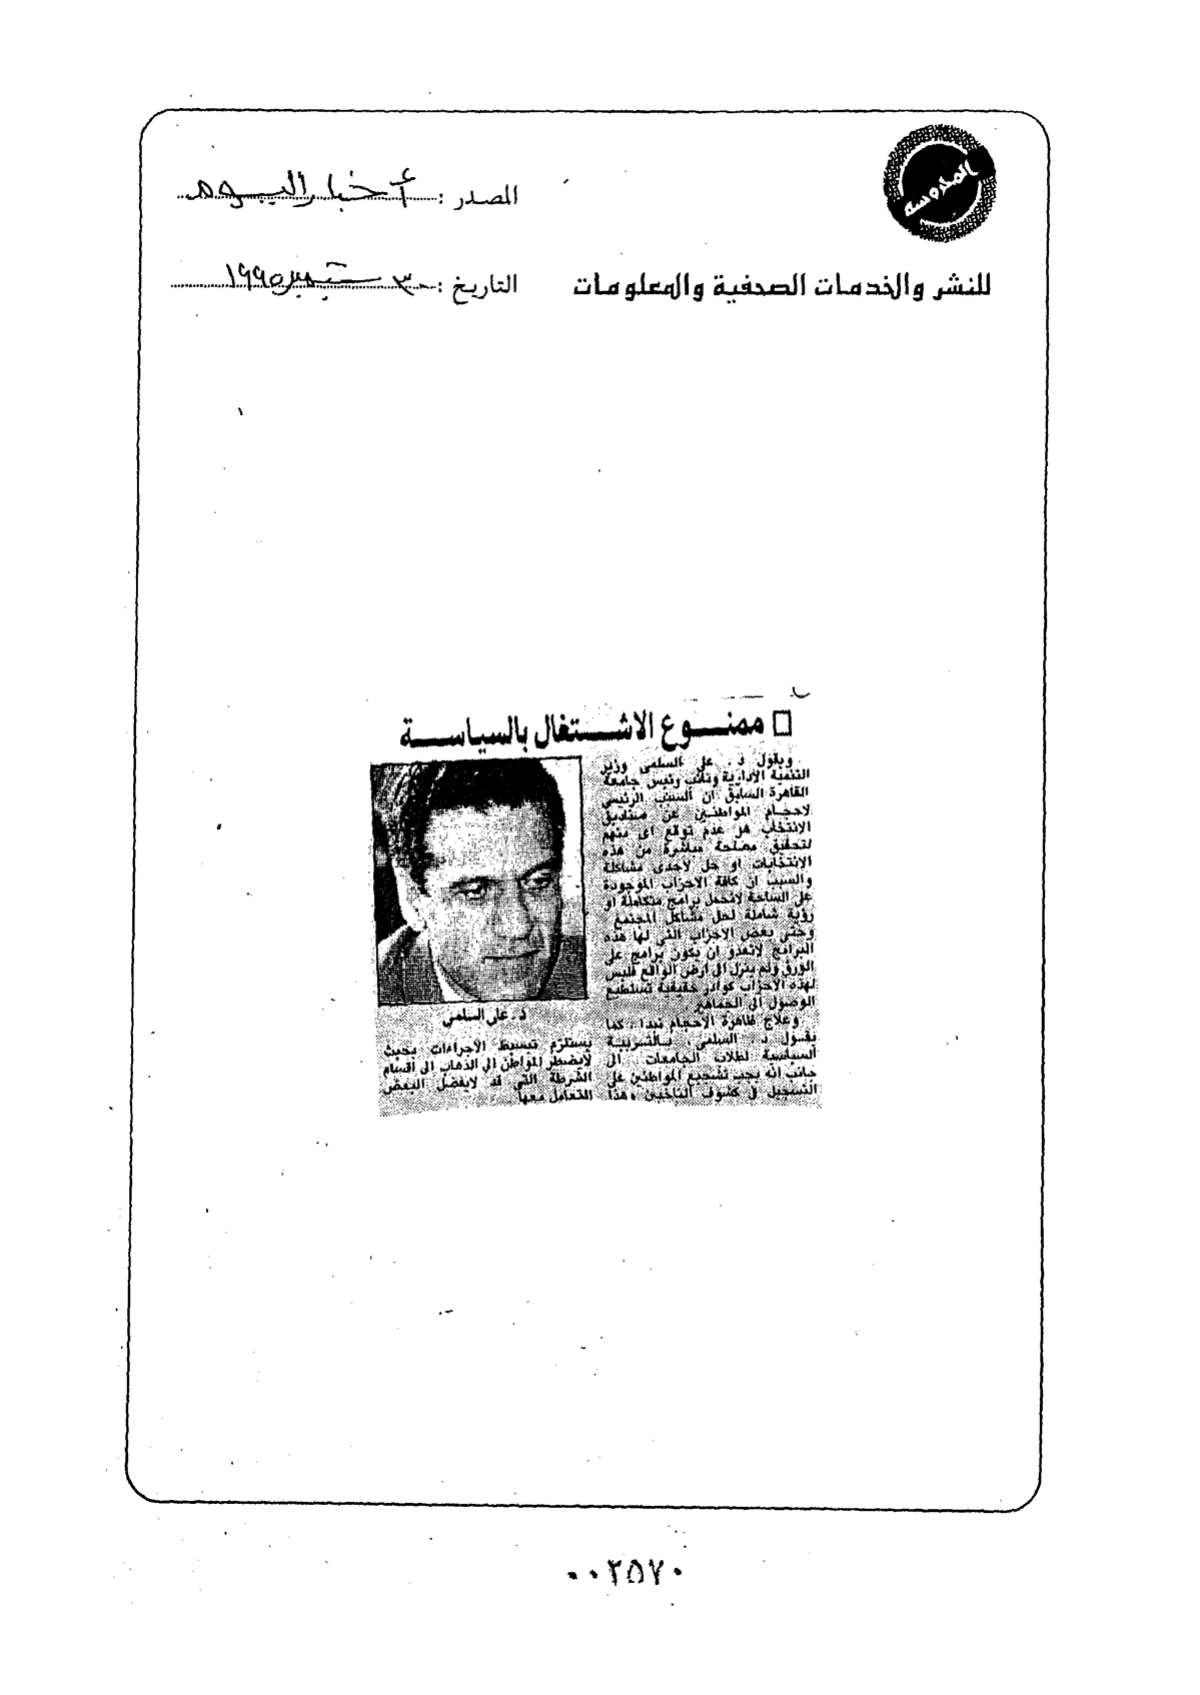 المحروسة
المصدر : أخبار اليوم
للنشر والخدمات الصحفية والمعلومات
التاريخ : ٣٠ سبتمبر ١٩٩٥
ممنـــوع الاشـــتغال بالسياســـة
ويقول د . على السلمى وزير
التنمية الإدارية ونائب رئيس جامعة
القاهرة السابق ان السبب الرئيسى
لاحجام المواطنين عن صناديق
الانتخاب هو عدم توقع اى منهم
لتحقيق مصلحة مباشرة من هذه
الانتخابات او حل لإحدى مشاكله
والسبب ان كافة الاحزاب الموجودة
على الساحة لاتحمل برامج متكاملة او
رؤية شاملة لحل مشاكل المجتمع
وحتى بعض الاحزاب التى لها هذه
البرامج لاتعدو ان يكون برامج على
الورق ولم ينزل الى ارض الواقع فليس
لهذه الاحزاب كوادر حقيقية تستطيع
الوصول الى الجماهير
وعلاج ظاهرة الاحجام تبدأ ، كما
يقـول د . السلمى ، بـالتربيـة
السياسية لطلاب الجامعات الى
جانب انه يجب تشجيع المواطنين على
التسجيل فى كشوف الناخبين وهذا
د . على السلمي
يستلزم تبسيط الاجراءات بحيث
لايضطر المواطن الى الذهاب الى أقسام
الشرطة التى قد لايفضل البعض
التعامل معها
٠٠٢٥٧٠